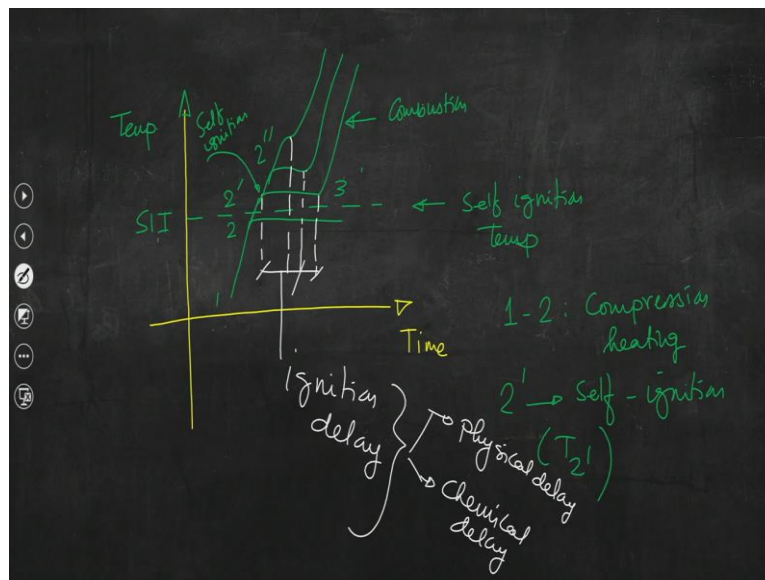 Temp
Self
ignition
2''
Combustion
2'
3
SIT
Self ignition
Temp
2
1
Time
1-2: Compression
heating
2' → Self-ignition
(T2')
Ignition
delay
→ Physical delay
→ Chemical
delay